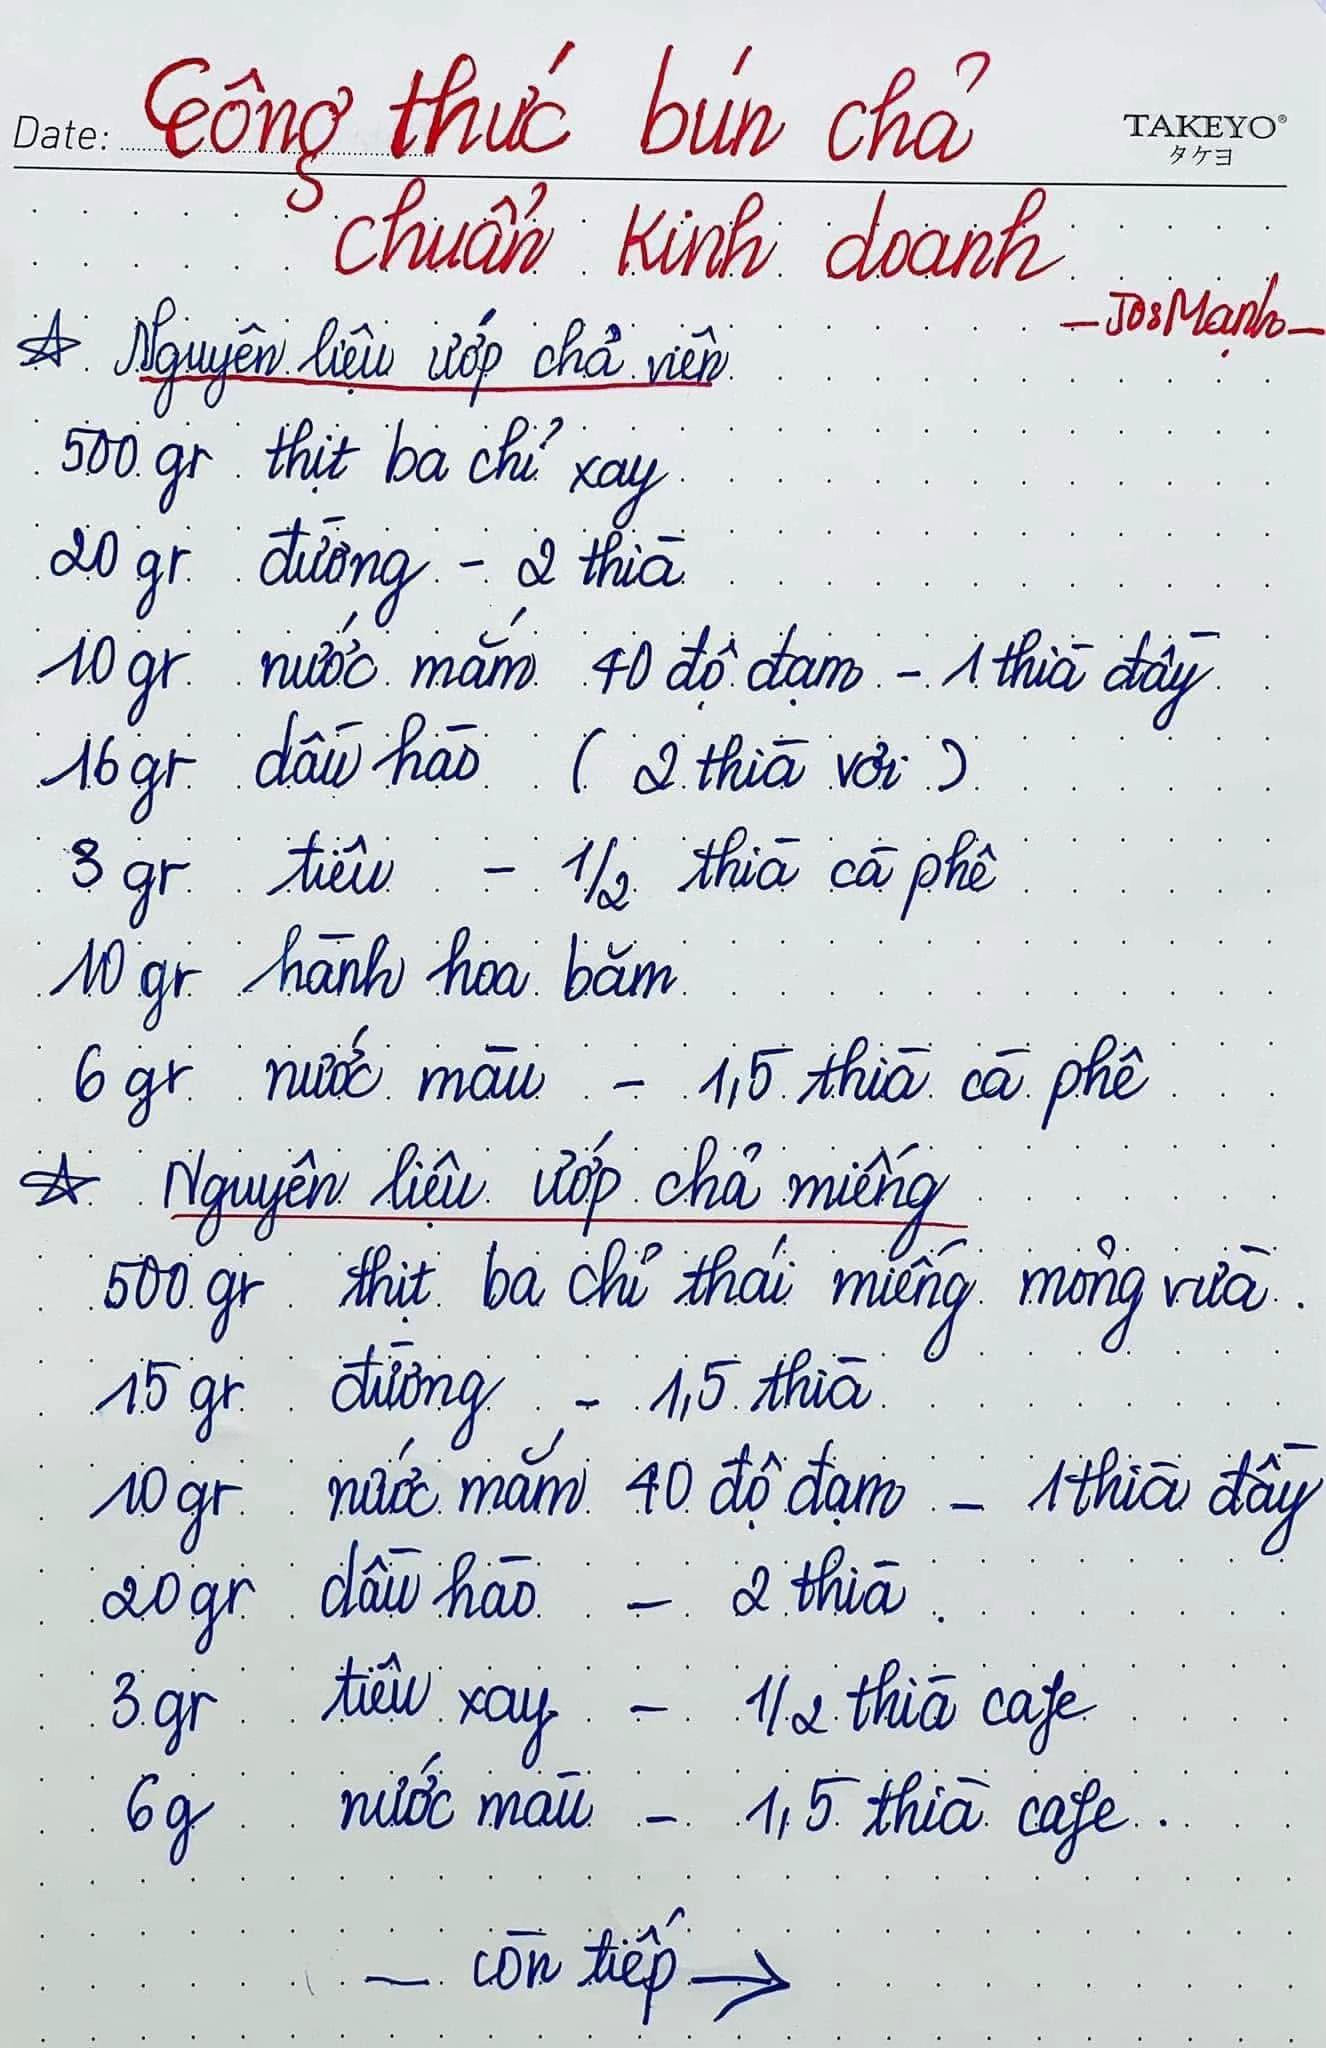 Date: Công thức bún chả
TAKEYO®
タケヨ
chuẩn Kinh doanh
- JosMạnh -
☆ Nguyên liệu ướp chả viên
500 gr thịt ba chỉ xay
20 gr đường - 2 thìa
10 gr nước mắm 40 độ đạm - 1 thìa đầy
16 gr dầu hào ( 2 thìa vơi )
3 gr tiêu - 1/2 thìa cà phê
10 gr hành hoa băm
6 gr nước màu - 1,5 thìa cà phê
☆ Nguyên liệu ướp chả miếng
500 gr thịt ba chỉ thái miếng mỏng vừa.
15 gr đường - 1,5 thìa
10 gr nước mắm 40 độ đạm - 1 thìa đầy
20 gr dầu hào - 2 thìa.
3 gr tiêu xay - 1/2 thìa cafe
6g nước màu - 1,5 thìa cafe.
- còn tiếp →